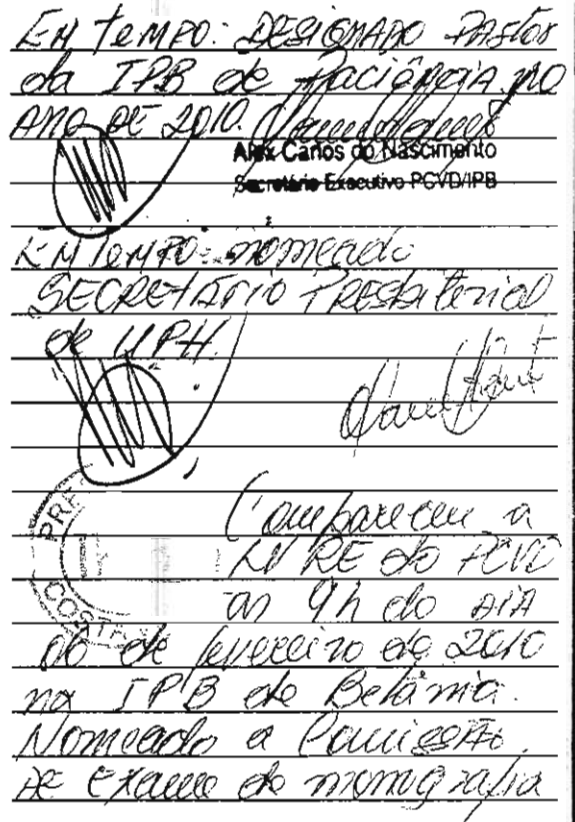 EM TEMPO: DESIGNADO PASTOR
da IPB de Paciência no
ANO DE 2010.
Alex Carlos do Nascimento
Secretário Executivo PCVD/IPB
EM TEMPO: nomeado
SECRETÁRIO PRESBITERIAL
de UPH.
PRE
COSTA
Compareceu a
RE do PCVD
às 9h do DIA
06 de fevereiro de 2010
na IPB de Betânia.
Nomeado a Comissão
DE Exame de monografia